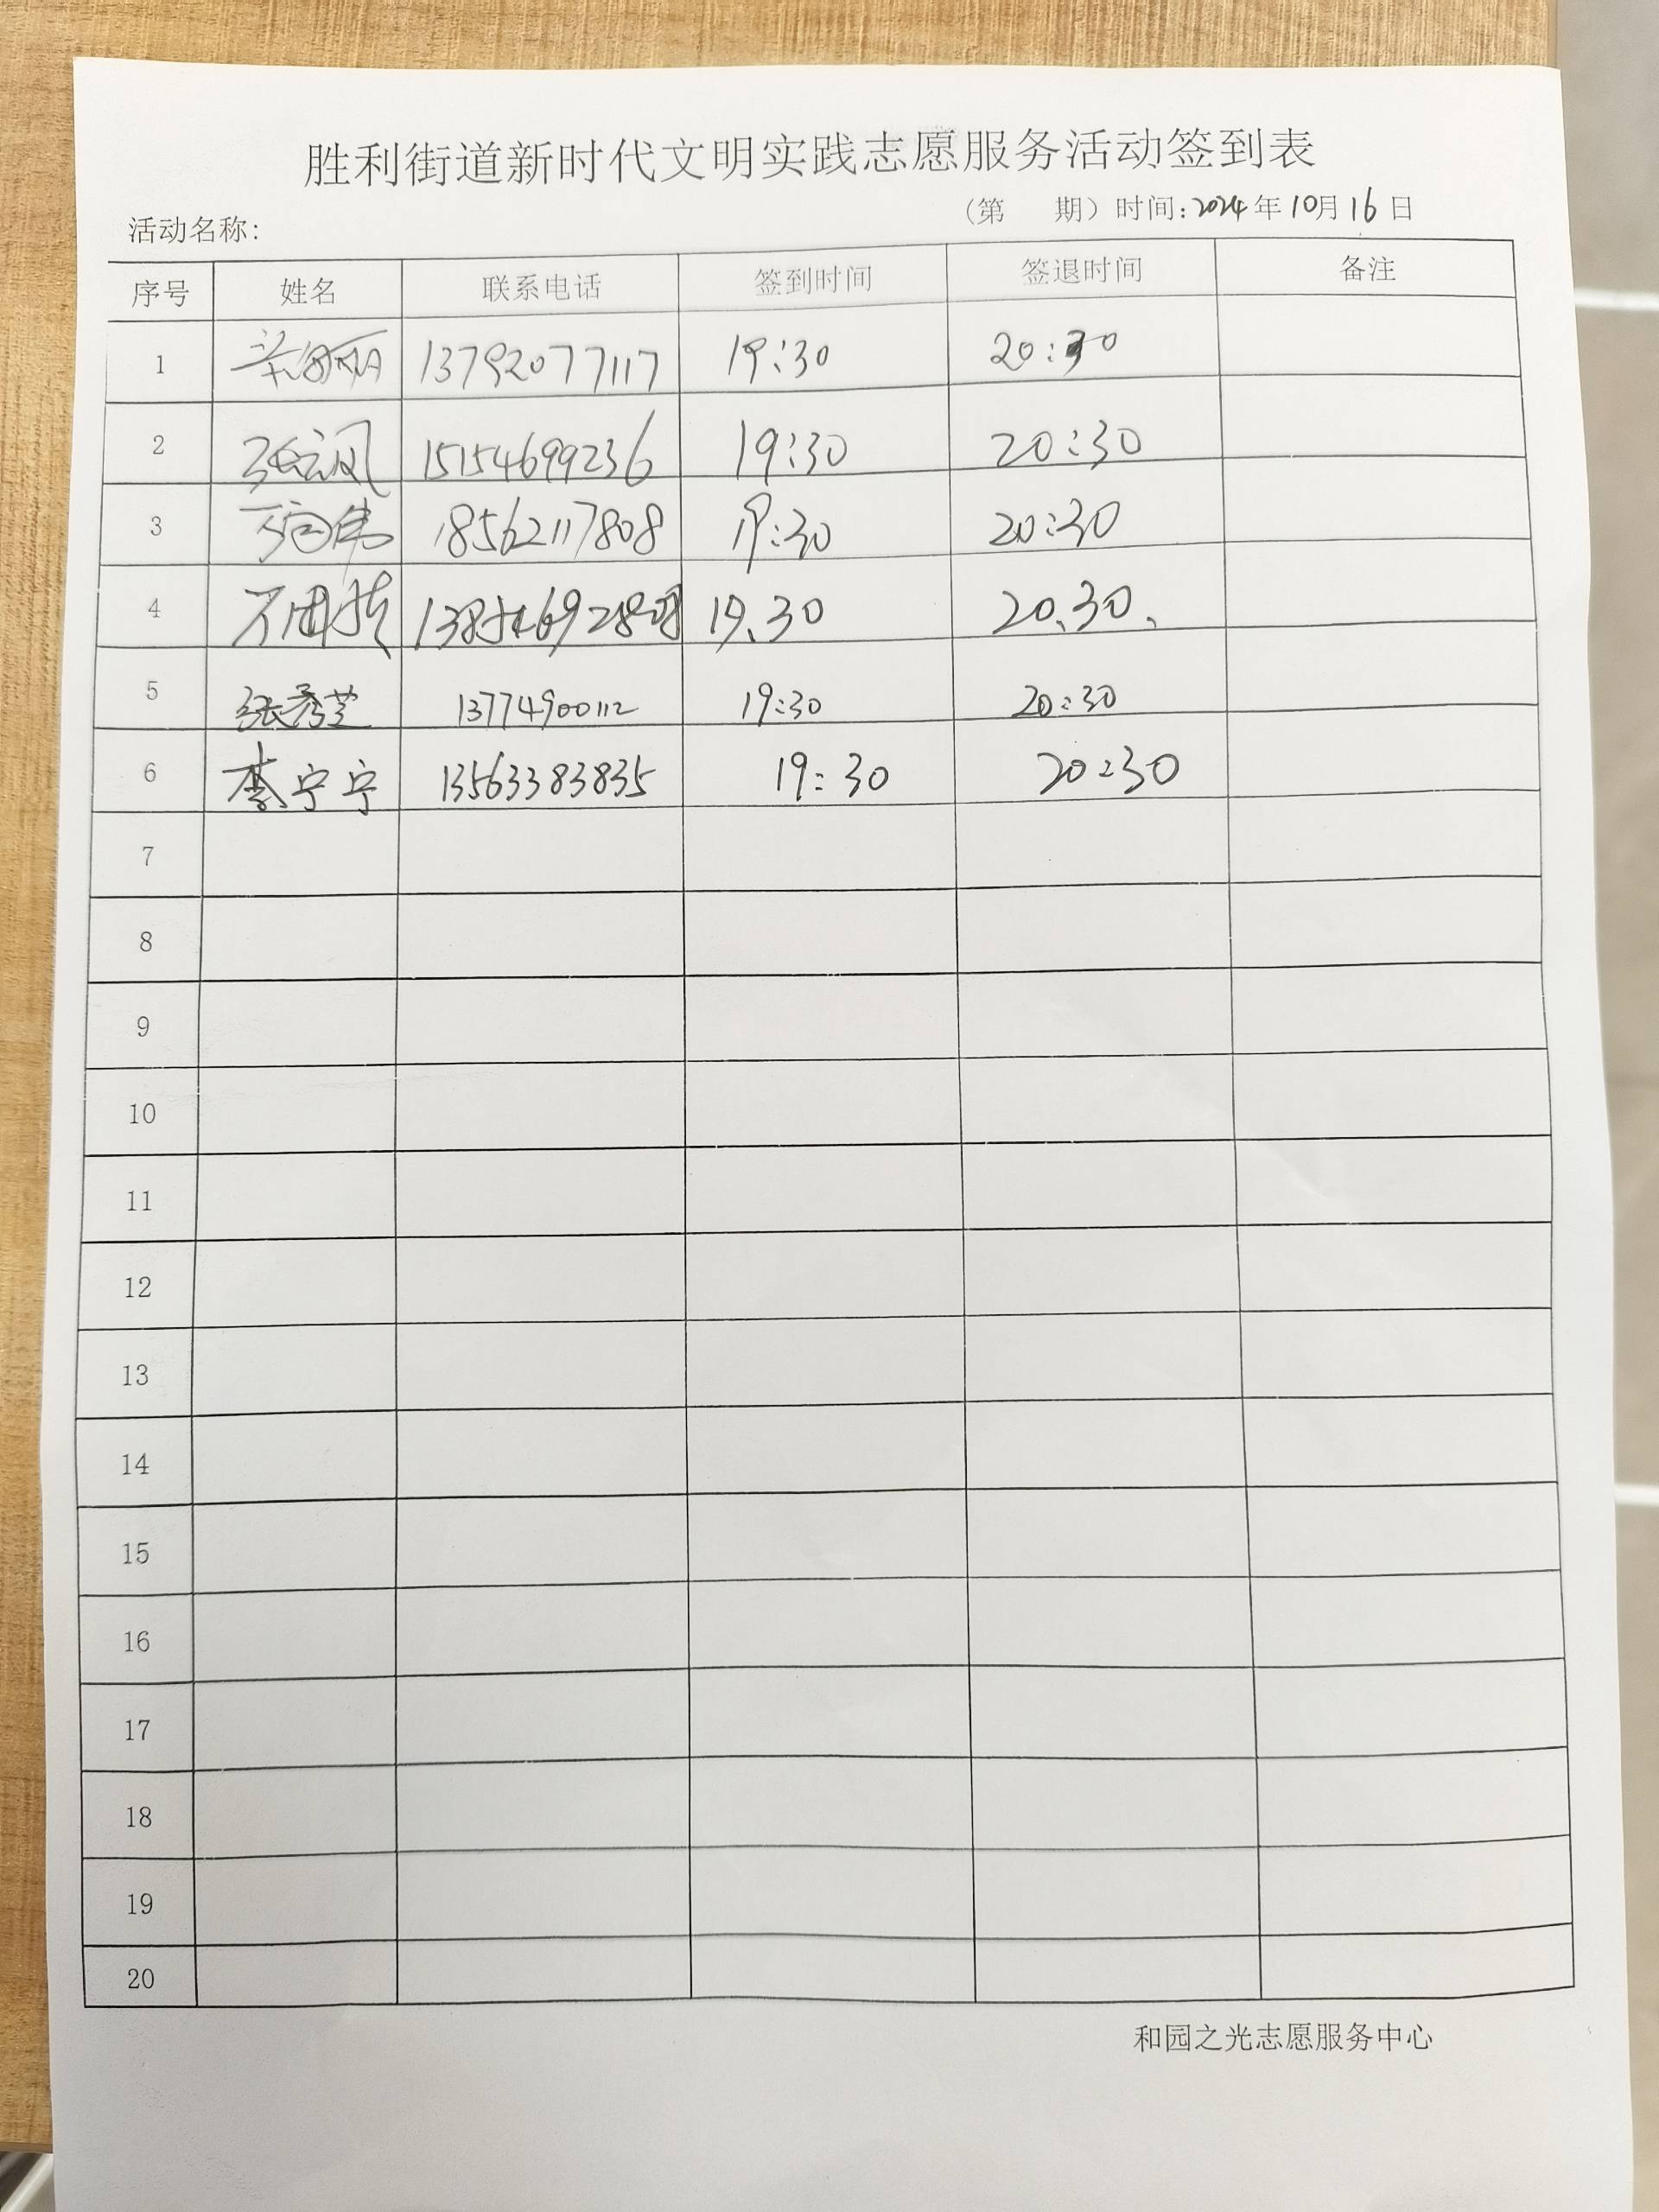 胜利街道新时代文明实践志愿服务活动签到表
活动名称: (第 期) 时间:2024年10月16日
序号 姓名 联系电话 签到时间 签退时间 备注
1 13792077117 19:30 20:30
2 张云凤 15154699236 19:30 20:30
3 18562117808 19:30 20:30
4 19.30 20.30.
5 张秀芝 13774900112 19:30 20:30
6 李宁宁 13563383835 19:30 20:30
7
8
9
10
11
12
13
14
15
16
17
18
19
20
和园之光志愿服务中心